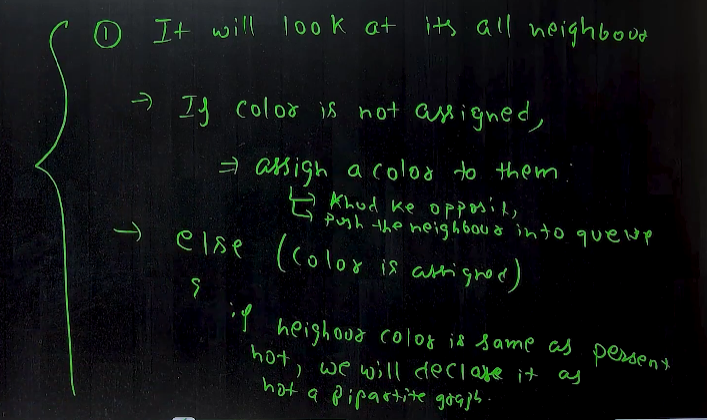 ① It will look at its all neighbour
→ If color is not assigned,
⇒ assign a color to them.
↳ Khud ke opposit,
↳ push the neighbour into queue
→ else (color is assigned)
{
if neighour color is same as persent
not, we will declare it as
not a Bipartite graph.